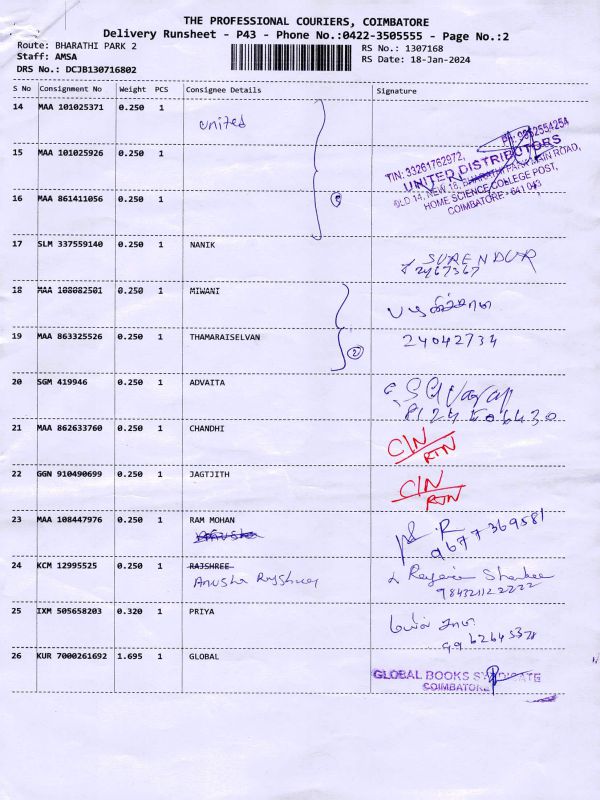 THE PROFESSIONAL COURIERS, COIMBATORE
Delivery Runsheet - P43 - Phone No.:0422-3505555 - Page No.:2
Route: BHARATHI PARK 2
RS No.: 1307168
Staff: AMSA
RS Date: 18-Jan-2024
DRS No.: DCJB130716802
S No Consignment No Weight PCS Consignee Details Signature
14 MAA 101025371 0.250 1
United
15 MAA 101025926 0.250 1
TIN: 33261762972,
UNITED DISTRIBUTORS
OLD 14, NEW 18, BHARATHI PARK MAIN ROAD,
HOME SCIENCE COLLEGE POST,
COIMBATORE - 641 043
16 MAA 861411056 0.250 1
17 SLM 337559140 0.250 1 NANIK
SURENDUR
2467367
18 MAA 108082501 0.250 1 MIWANI
19 MAA 863325526 0.250 1 THAMARAISELVAN
2
24042734
20 SGM 419946 0.250 1 ADVAITA
21 MAA 862633760 0.250 1 CHANDHI
C/N
RTN
22 GGN 910490699 0.250 1 JAGTJITH
C/N
RTN
23 MAA 108447976 0.250 1 RAM MOHAN
9677369581
24 KCM 12995525 0.250 1 RAJSHREE
Anusha
25 IXM 505658203 0.320 1 PRIYA
26 KUR 7000261692 1.695 1 GLOBAL
GLOBAL BOOKS SYNDICATE
COIMBATORE